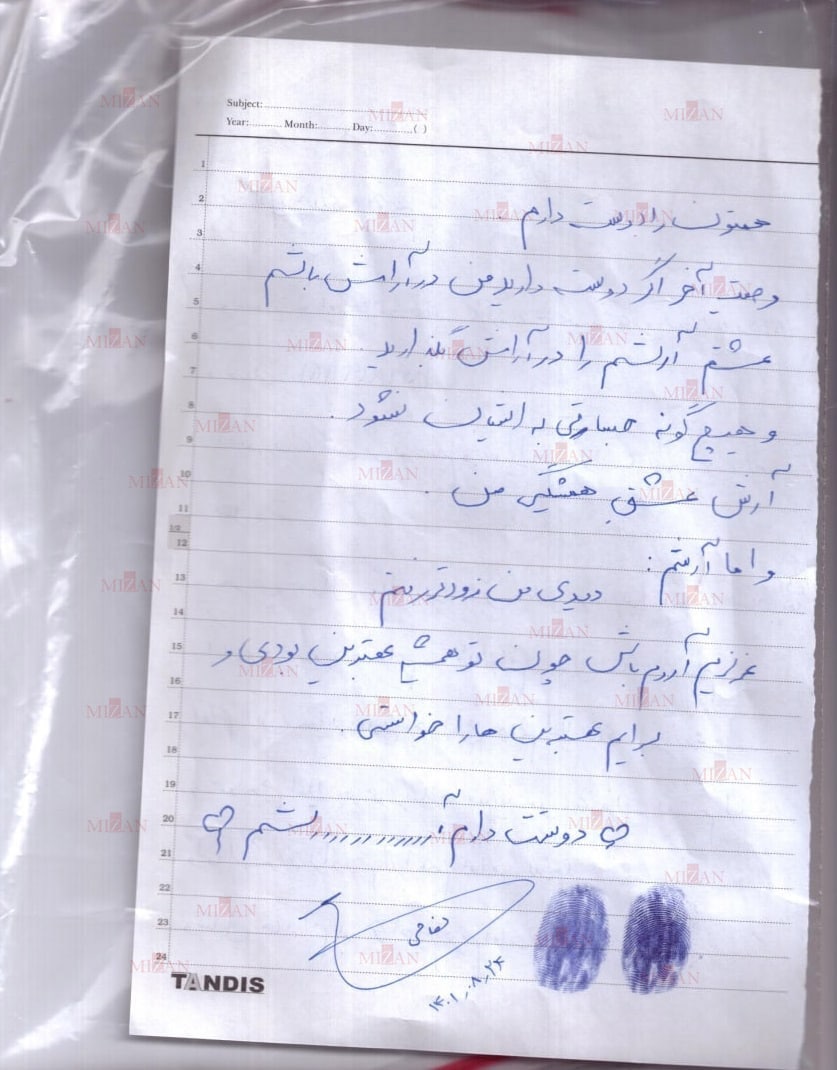 Subject:
Year: Month: Day: ( )
همتون را دوست دارم
وصیت آخر اگر دوست دارید من در آرامش باشم
عشقم آرشم را در آرامش بگذارید
و هیچ گونه جسارتی به ایشان نشود.
آرش عشق همیشگی من.
و اما آرشم:
دیدی من زودتر رفتم
عزیزم آروم باش چون تو همیشه بهترین بودی و
برایم بهترین ها را خواستی.
دوستت دارم آ..............رشم
۱۴۰۱،۰۸،۲۴
1
2
3
4
5
6
7
8
9
10
11
12
13
14
15
16
17
18
19
20
21
22
23
24
TANDIS
MIZAN